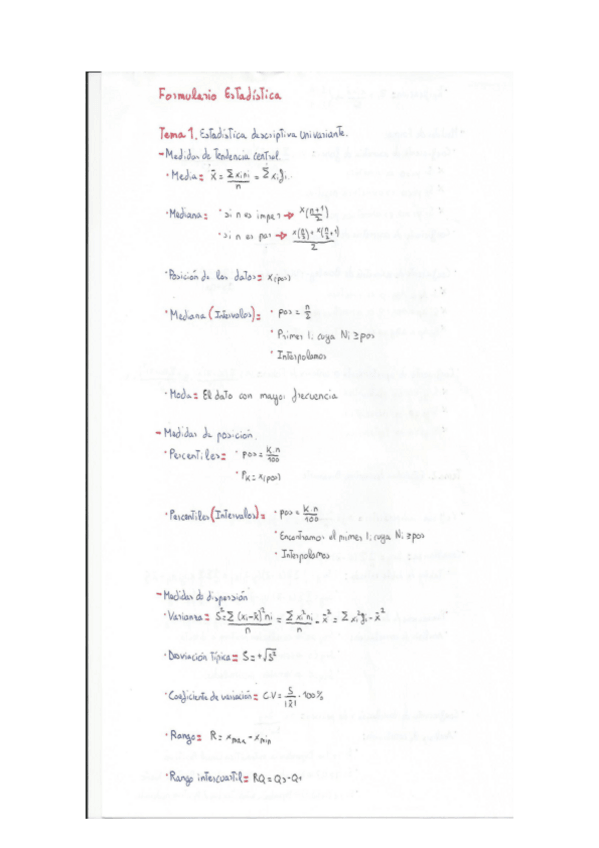 Formulario Estadística
Tema 1. Estadística descriptiva univariante.
- Medidas de tendencia central.
· Media = x̄ = Σxini/n = Σxifi.
· Mediana = · si n es impar → x((n+1)/2)
· si n es par → (x(n/2) + x(n/2+1))/2
· Posición de los datos = x(pos)
· Mediana (Intervalos) = · pos = n/2
· Primer Ii cuya Ni ≥ pos
· Interpolamos
· Moda = El dato con mayor frecuencia
- Medidas de posición.
· Percentiles = · pos = K·n/100
· PK = x(pos)
· Percentiles (Intervalos) = · pos = K·n/100
· Encontramos el primer Ii cuya Ni ≥ pos
· Interpolamos
- Medidas de dispersión
· Varianza = S² = Σ(xi-x̄)²ni/n = Σxi²ni/n - x̄² = Σxi²fi - x̄²
· Desviación típica = S = +√S²
· Coeficiente de variación = C.V = S/|x̄| · 100%
· Rango = R = xmax - xmin
· Rango intercuartil = RQ = Q3 - Q1